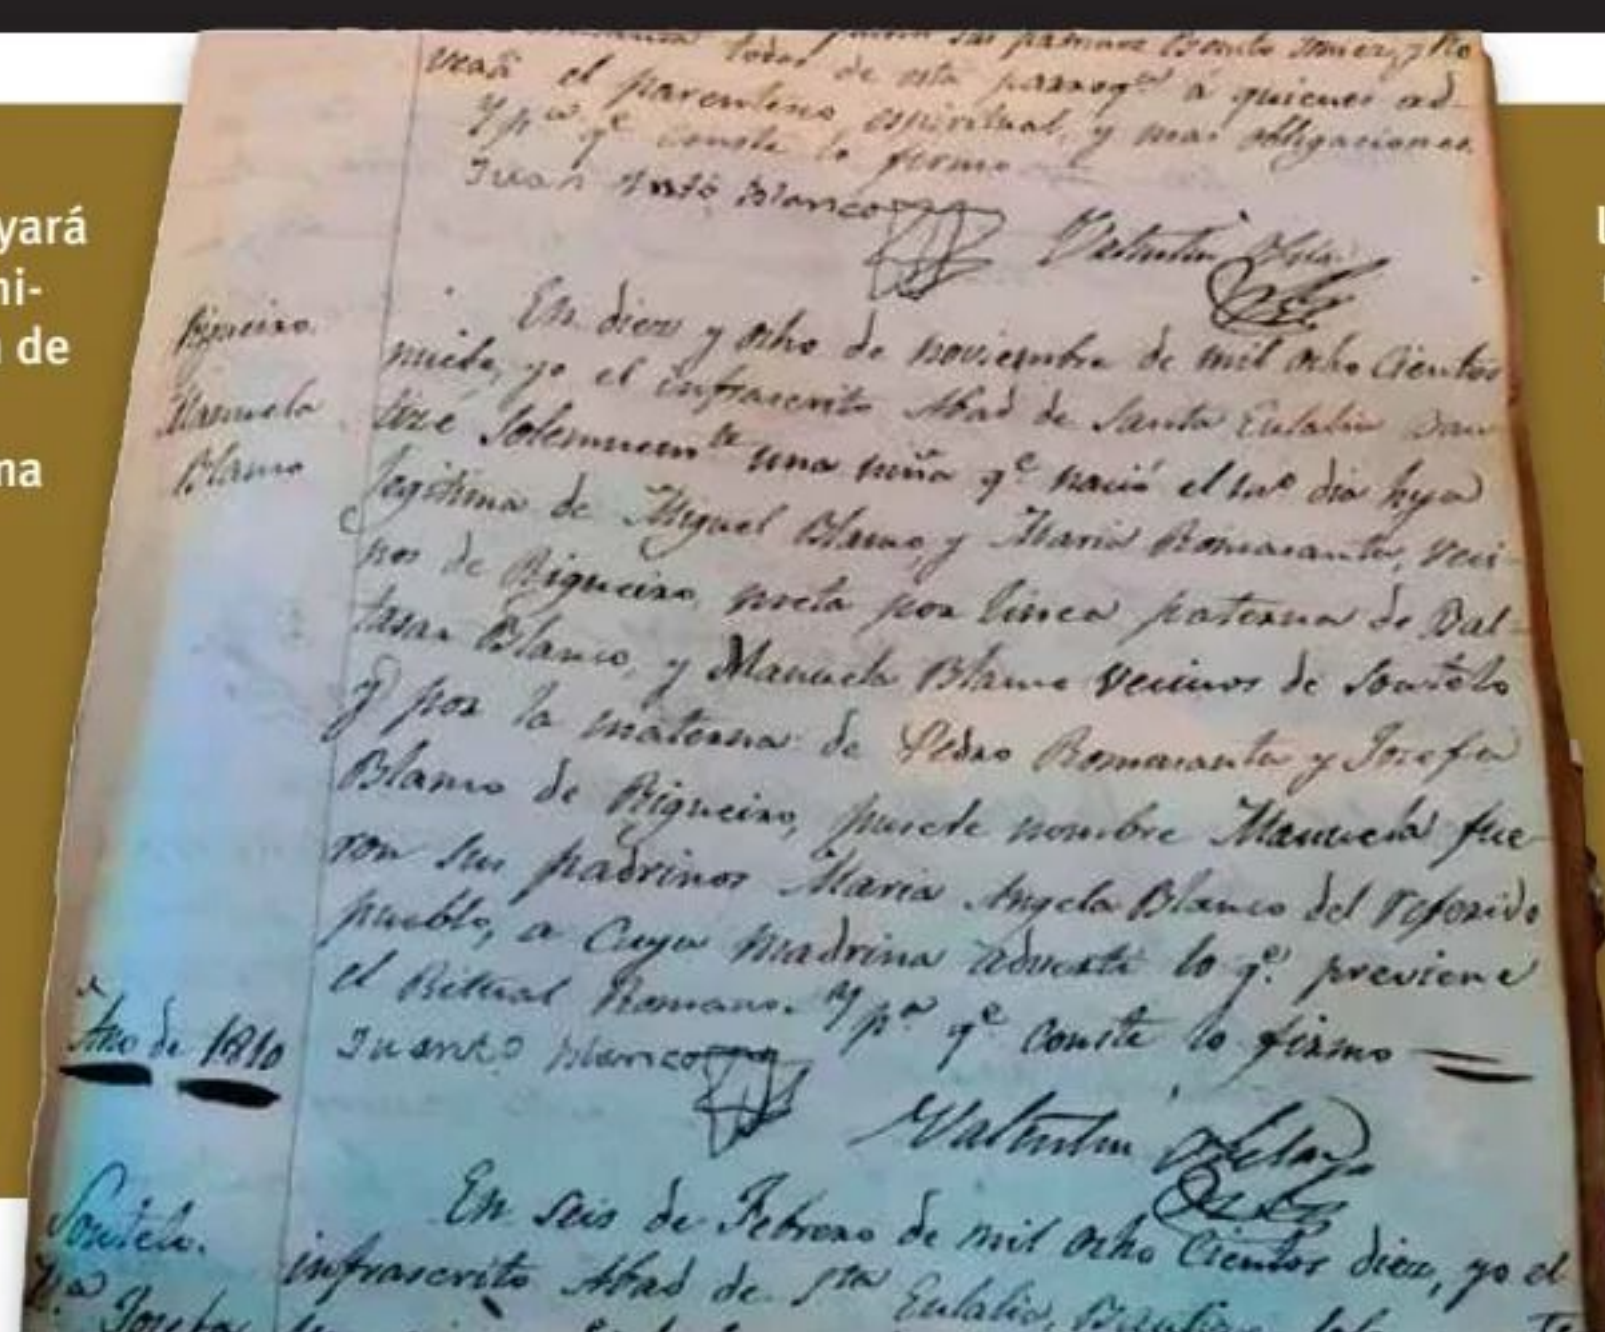 yará
ni-
de
na
todos de esta parroq.ª á quienes ad-
el parentesco espiritual, y mas obligaciones.
Y p.ª q.e conste lo firmo
Juan Antº Blanco
Valentin
Rigueiro.
Manuela
Blanco
En diez y ocho de noviembre de mil ocho Cientos
nuebe, yo el infrascrito Abad de Santa Eulalia Bau
tizé Solemnem.te una niña q.e nació el mº dia hija
legitima de Miguel Blanco, y Maria Romasanta, veci-
nos de Rigueiro, nieta por linea paterna de Bal-
tasar Blanco, y Manuela Blanco vecinos de Soutelo
y por la materna de Pedro Romasanta y Josefa
Blanco de Rigueiro, pusele nombre Manuela fue-
ron sus padrinos Maria Angela Blanco del referido
pueblo, a Cuya madrina adverti lo q.e previene
el Ritual Romano. Y p.ª q.e Conste lo firmo
Juan Blanco
Valentin
Año de 1810
Soutelo.
Josefa
En seis de Febrero de mil ocho Cientos diez, yo el
infrascrito Abad de Sta Eulalia,